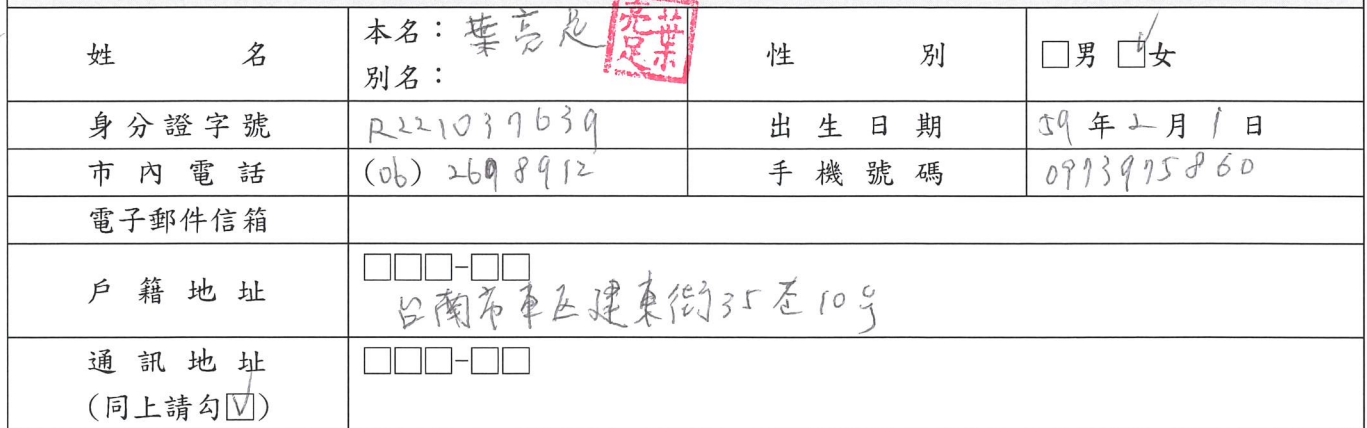 姓名 本名：葉亮足 葉亮足 性別 □男 ☑女
別名：
身分證字號 R221037639 出生日期 59年2月1日
市內電話 (06) 2698912 手機號碼 0973975860
電子郵件信箱
戶籍地址 □□□-□□
台南市東区建東街35巷10号
通訊地址 □□□-□□
(同上請勾☑)